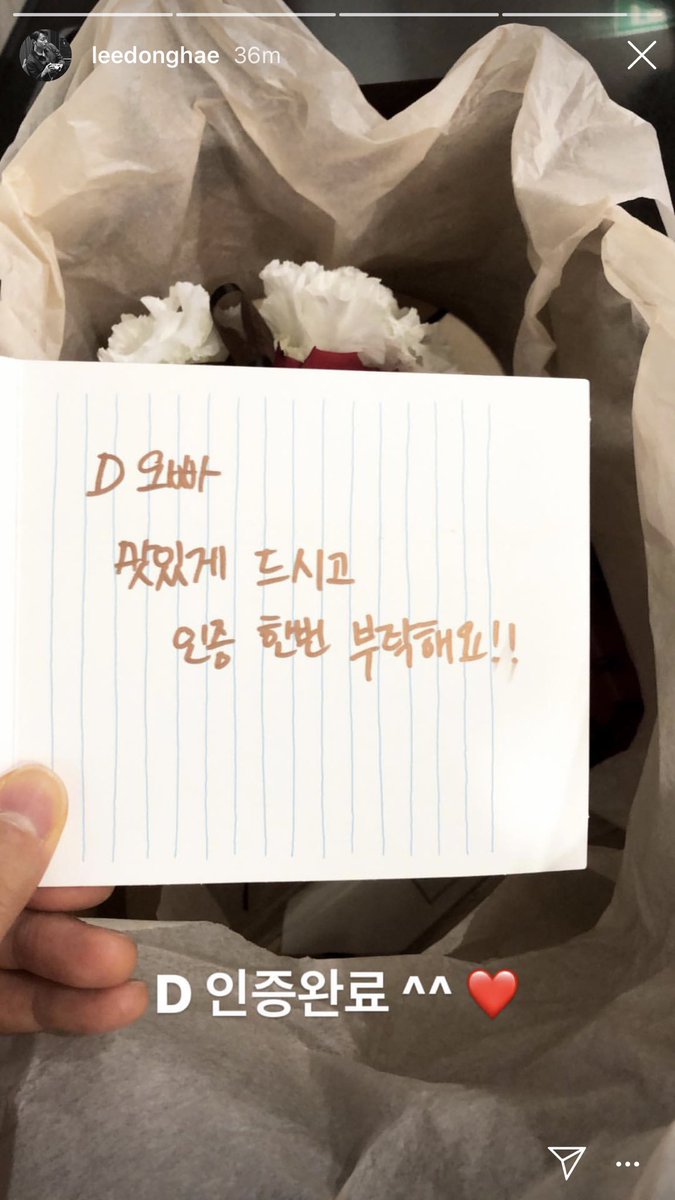 leedonghae 36m
D 오빠
맛있게 드시고
인증 한번 부탁해요!!
D 인증완료 ^^ ❤️